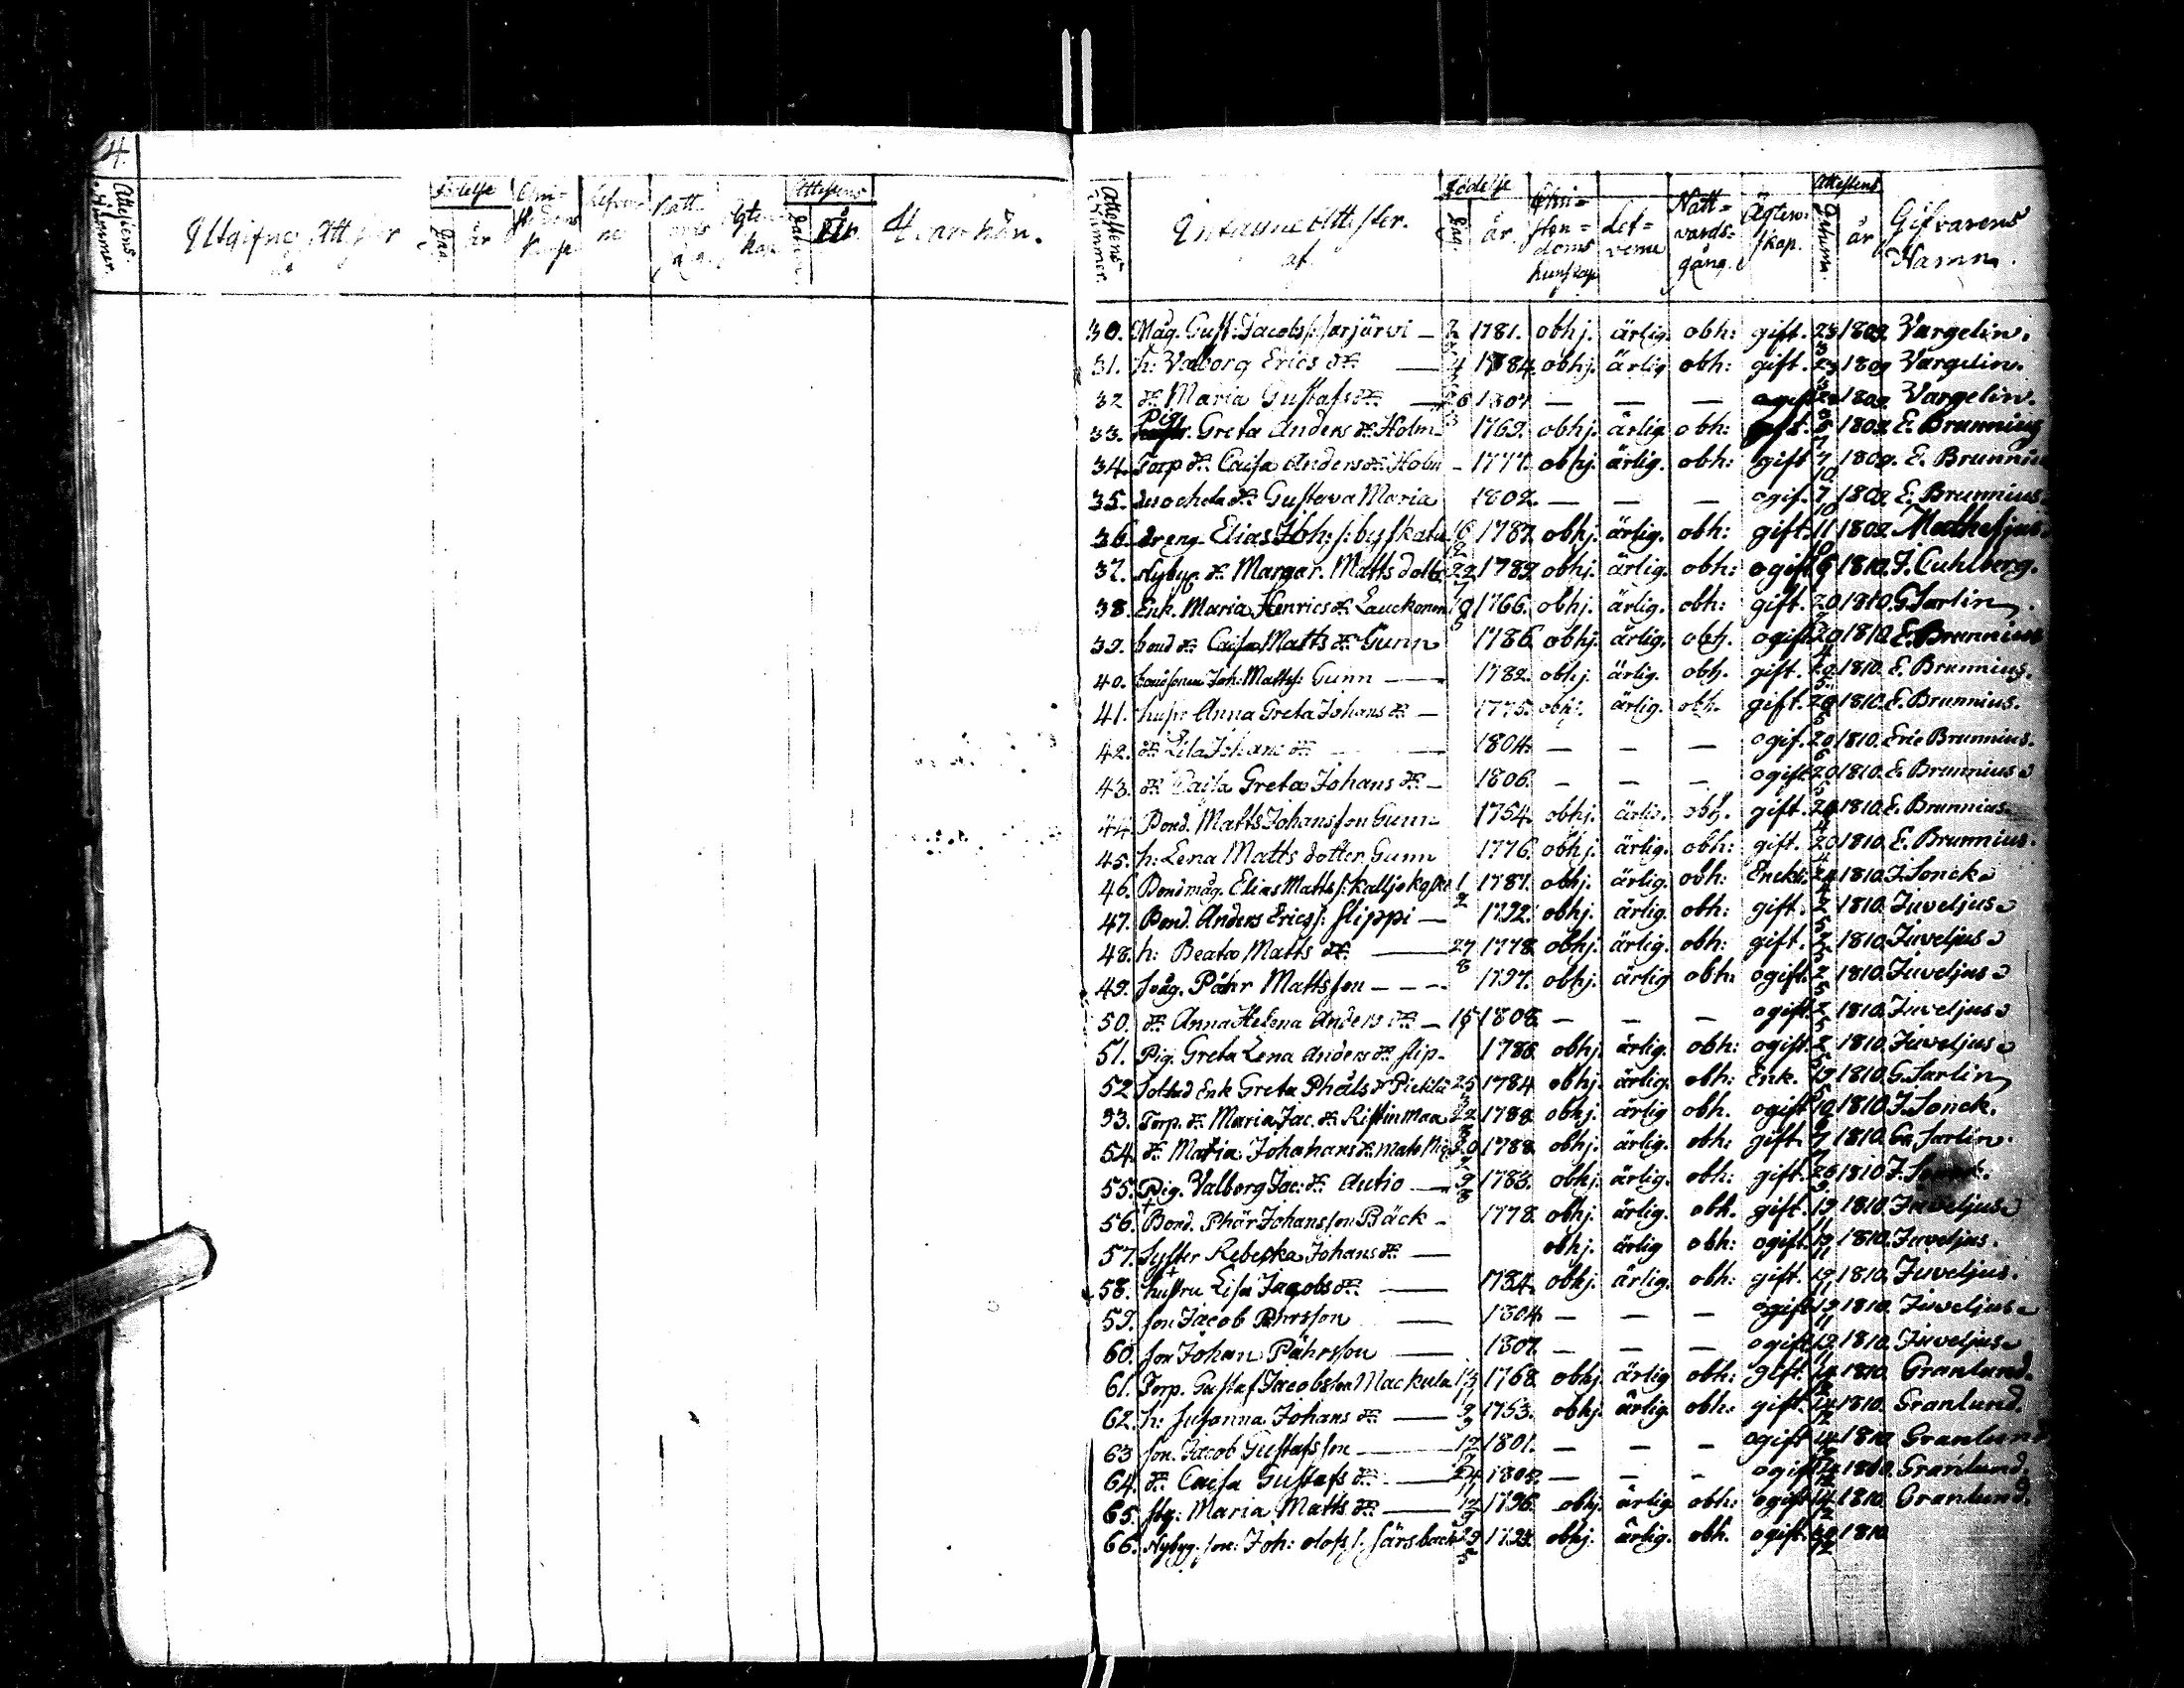 4.
Attestens Nummer.
Utgifne Attester
Födelse
Dag.
år
Chri=
stendoms
kunskap
Lefver
ne
Natt
vards
gång
Ägten
kap
Attestens
Datum.
År.
Hvarthän.
Attestens Nummer.
Intagne Attester.
af
Födelse
Dag.
år.
Chri=
sten=
doms
kunskap
Lef=
verne
Natt=
vards=
gång.
Ägten=
skap.
Attestens
Datum.
år
Gifvarens
Namn.
30. Måg. Gust: Jacobs s: sarjärvi — 1781. obhj. ärlig. obh: gift. 23/3 1809. Vargelin.
31. h: Valborg Erics dr. — 1784. obhj. ärlig obh: gift. 23/3 1809 Vargelin.
32 dr. Maria Gustafs dr. — 26/3 1807 — — — ogift 1809. Vargelin.
33. Pig. Greta Anders dr. Holm 1769. obhj. ärlig. obh: 1809. E. Brunnius
34. Torp dr. Caisa Anders dr. Holm — 1777. obhj. ärlig. obh: gift 7/10 1809. E. Brunnius
35. dess ochda dr. Gustava Maria 1802. — — — ogif. 7/10 1809. E. Brunnius.
36. dreng Elias Joh: s: byskata 16/2 1787. obhj. ärlig. obh: gift. 11 1809. Mathesjus.
37. Nybyg. dr. Margar. Matts dott. 22/7 1789. obhj. ärlig. obh: ogift 6 1810. J. Cuhlberg.
38. Enk. Maria Henrics dr. Lauckonen 1766. obhj. ärlig. obh: gift. 20 1810. G. Sarlin.
39. bond dr. Caisa Matts dr. Gunn 1786. obhj. ärlig. obhj. ogift. 20/4 1810. E. Brunnius
40. bondsonen Joh: Matts s: Gunn — 1782. obhj. ärlig. obhj. gift. 20 1810. E. Brunnius.
41. husr. Anna Greta Johans dr. — 1775. obhj. ärlig. obh. gift. 20 1810. E. Brunnius.
42. dr. Lisa Johans dr. — 1804. — — — ogif. 20 1810. Eric Brunnius.
43. dr. Caisa Greta Johans dr. — 1806. — — — ogift 20 1810. E. Brunnius
44. Bond. Matts Johansson Gunn 1754. obhj. ärlig. obhj. gift. 20/4 1810. E. Brunnius.
45. h: Lena Matts dotter Gunn 1776. obhj. ärlig. obh: gift. 20/4 1810. E. Brunnius.
46. Bondmåg. Elias Matts s: kalljokoske 1/2 1787. obhj. ärlig. obh: Enckl: 24/4 1810. J. Sonck
47. Bond. Anders Erics s: slippi — 1792. obhj. ärlig. obh: gift. 2/5 1810. Juveljus
48. h: Beata Matts dr. — 27/8 1778. obhj. ärlig. obh: gift. 2/5 1810. Juveljus
49. svåg. Pähr Mattsson — — 1797. obhj. ärlig obh: ogift. 2/5 1810. Juveljus
50. dr. Anna Helena Anders dr. — 1808. — — — ogift. 2/5 1810. Juveljus
51. Pig. Greta Lena Anders dr. slip. 1786. obhj. ärlig. obh: ogift. 2/5 1810. Juveljus
52 Soldad Enk Greta Phåls dr Pietilä 25 1784 obhj. ärlig. obh: Enk. 19 1810. G. Sarlin
53. Torp. dr. Maria Jac. dr. Ristinmaa 22 1788 obhj. ärlig obh. ogift 10 1810. J. Sonck.
54. dr. Maria Johanans dr. 20 1788. obhj. ärlig. obh: gift. 7 1810. Ga Sarlin.
55. Pig. Valborg Jac: dr. Autio — 9/8 1783. obhj. ärlig. obh: gift. 26/9 1810 J. Sonck.
56. Bond. Phär Johansson Bäck — 1778. obhj. ärlig. obh. gift. 19/11 1810. Juveljus
57. Syster Rebecka Johans dr. — obhj. ärlig obh: ogift. 19/11 1810. Juveljus.
58. hustru Lisa Jacobs dr. — 1784. obhj. ärlig. obh: gift. 19/11 1810. Juveljus.
59. son Jacob Pährsson — 1804. — — — ogift 19/11 1810. Juveljus
60. son Johan Pährsson — 1807. — — — ogift. 19/11 1810. Juveljus
61. Torp. Gustaf Jacobsson Mackula 13/11 1768. obhj. ärlig. obh: gift. 14/12 1810. Granlund.
62. h: Susanna Johans dr. — 1763. obhj. ärlig. obh: gift. 14/12 1810. Granlund.
63 son. Jacob Gustafsson — 1801. — — — ogift 14/12 1810. Granlund
64. dr. Caisa Gustafs dr. — 24/11 1808. — — — ogift 14/12 1810. Granlund.
65. Maria Matts dr. — 1796. obhj. ärlig obh: ogift 14/12 1810. Granlund.
66. Nybyg. son: Joh: olofs s: särsback 29/5 1793. obhj. ärlig. obh. ogift. 1810.